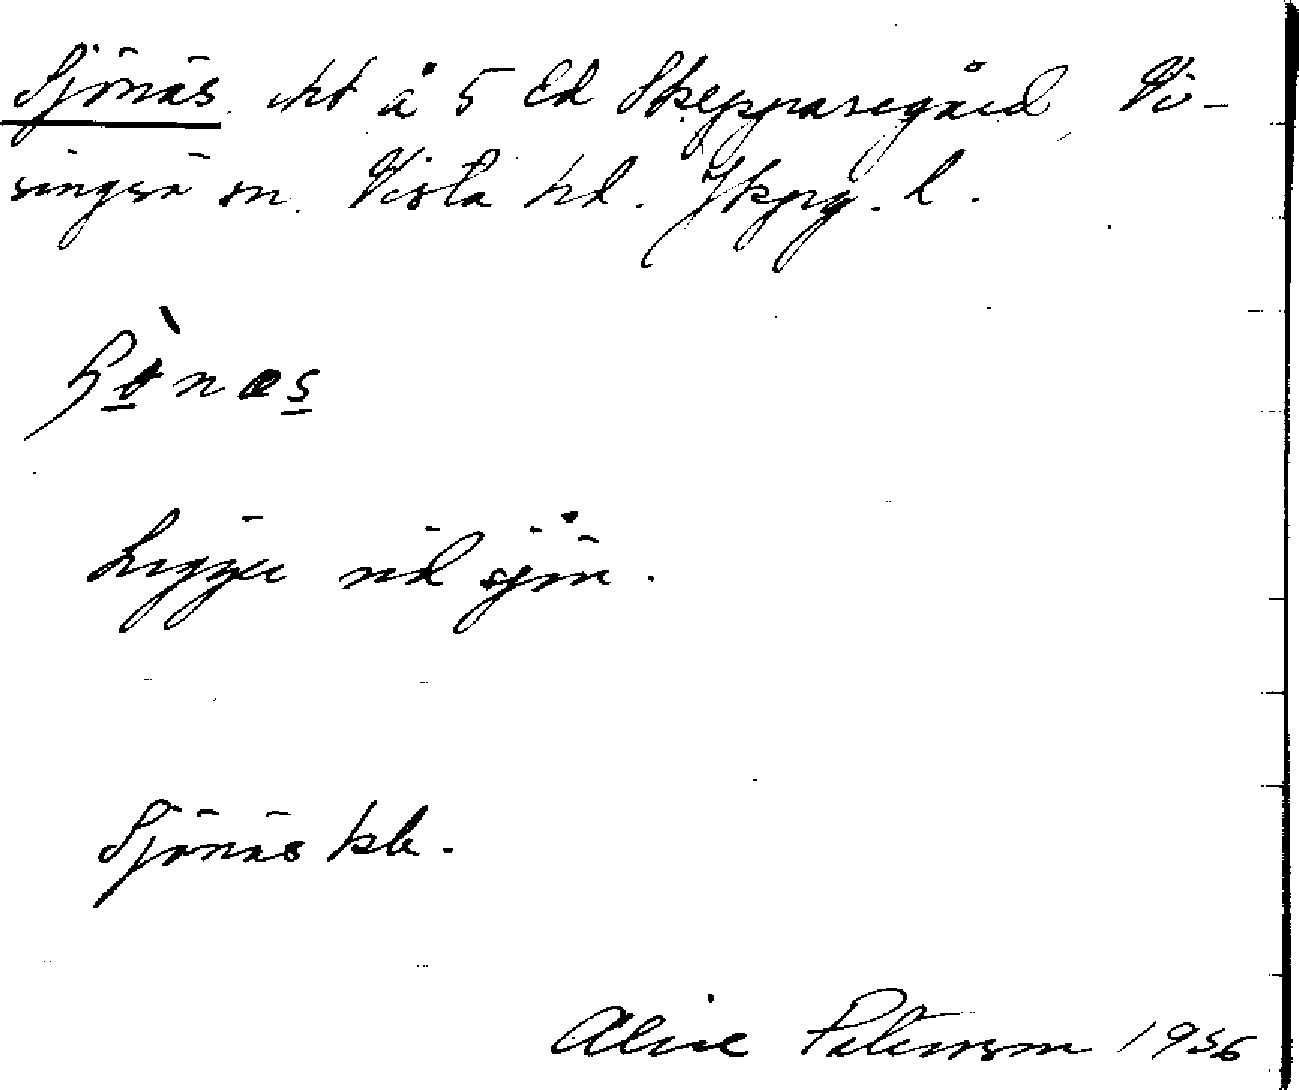 Sjönäs. lht å 5 Ed Skepparegård, Vi-
singsö sn. Vista hd. Jkpg. l.
Ligger vid sjön.
Sjönäs kb.
Alice Peterson 1936